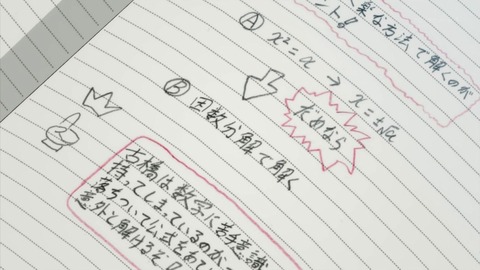 楽な方法で解くのが
ント!!
Ⓐ x²=a → x=±√a
だめなら
Ⓑ 因数分解で解く
古橋は数学に苦手意識
持ってしまっているのが
落ちついて公式をあて
意外と解けるぞ!!